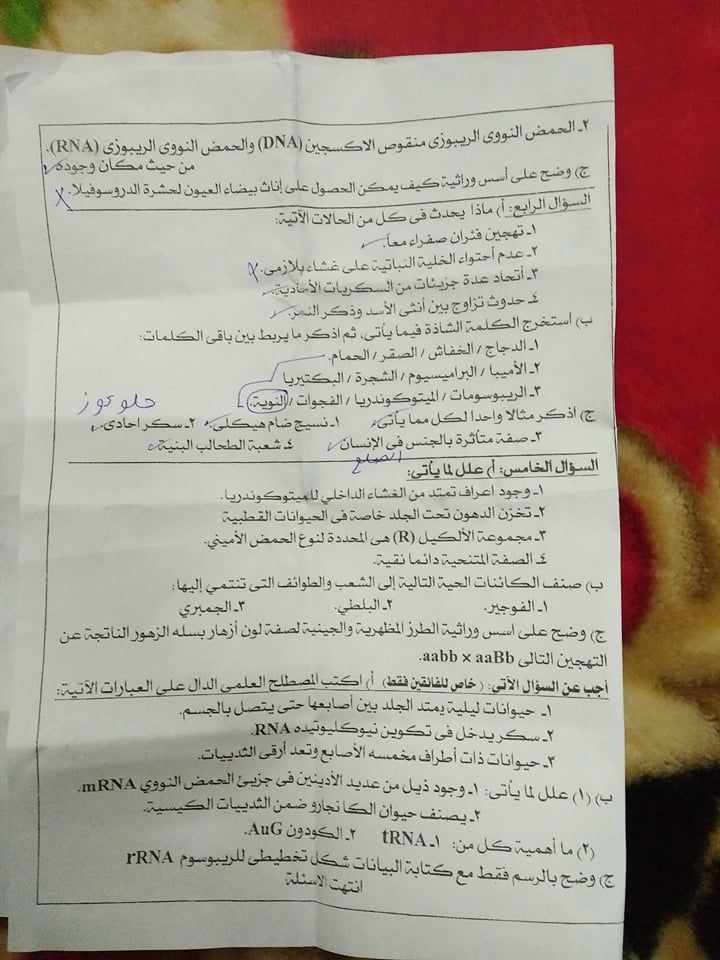 ٢ـ الحمض النووى الريبوزى منقوص الاكسجين (DNA) والحمض النووى الريبوزى (RNA).
من حيث مكان وجوده
ج) وضح على أسس وراثية كيف يمكن الحصول على إناث بيضاء العيون لحشرة الدروسوفيلا.
السؤال الرابع: أ) ماذا يحدث فى كل من الحالات الآتية:
١ـ تهجين فئران صفراء معاً.
٢ـ عدم أحتواء الخلية النباتية على غشاء بلازمى.
٣ـ أتحاد عدة جزيئات من السكريات الأحادية.
٤ـ حدوث تزاوج بين أنثى الأسد وذكر النمر.
ب) استخرج الكلمة الشاذة فيما يأتى، ثم اذكر ما يربط بين باقى الكلمات:
١ـ الدجاج / الخفاش / الصقر / الحمام.
٢ـ الأميبا / البراميسيوم / الشجرة / البكتيريا
٣ـ الريبوسومات / الميتوكوندريا / الفجوات / النوية.
جلوكوز
ج) اذكر مثالا واحدا لكل مما يأتى: ١ـ نسيج ضام هيكلى. ٢ـ سكر احادى.
٣ـ صفة متأثرة بالجنس فى الإنسان ٤ـ شعبة الطحالب البنية.
الصلع
السؤال الخامس: أ) علل لما يأتى:
١ـ وجود اعراف تمتد من الغشاء الداخلي للميتوكوندريا.
٢ـ تخزن الدهون تحت الجلد خاصة فى الحيوانات القطبية
٣ـ مجموعة الألكيل (R) هى المحددة لنوع الحمض الأميني.
٤ـ الصفة المتنحية دائما نقية.
ب) صنف الكائنات الحية التالية إلى الشعب والطوائف التى تنتمي إليها:
١ـ الفوجير. ٢ـ البلطي. ٣ـ الجمبري
ج) وضح على اسس وراثية الطرز المظهرية والجينية لصفة لون أزهار بسله الزهور الناتجة عن
التهجين التالى aabb × aaBb.
أجب عن السؤال الآتى: (خاص للفائقين فقط) أ) اكتب المصطلح العلمي الدال على العبارات الآتية:
١ـ حيوانات ليلية يمتد الجلد بين أصابعها حتى يتصل بالجسم.
٢ـ سكر يدخل فى تكوين نيوكليوتيده RNA.
٣ـ حيوانات ذات أطراف مخمسه الأصابع وتعد أرقى الثدييات.
ب) (١) علل لما يأتى: ١ـ وجود ذيل من عديد الأدينين فى جزيئ الحمض النووي mRNA.
٢ـ يصنف حيوان الكانجارو ضمن الثدييات الكيسية.
(٢) ما أهمية كل من: ١ـ tRNA ٢ـ الكودون AuG.
ج) وضح بالرسم فقط مع كتابة البيانات شكل تخطيطى للريبوسوم rRNA
انتهت الاسئلة